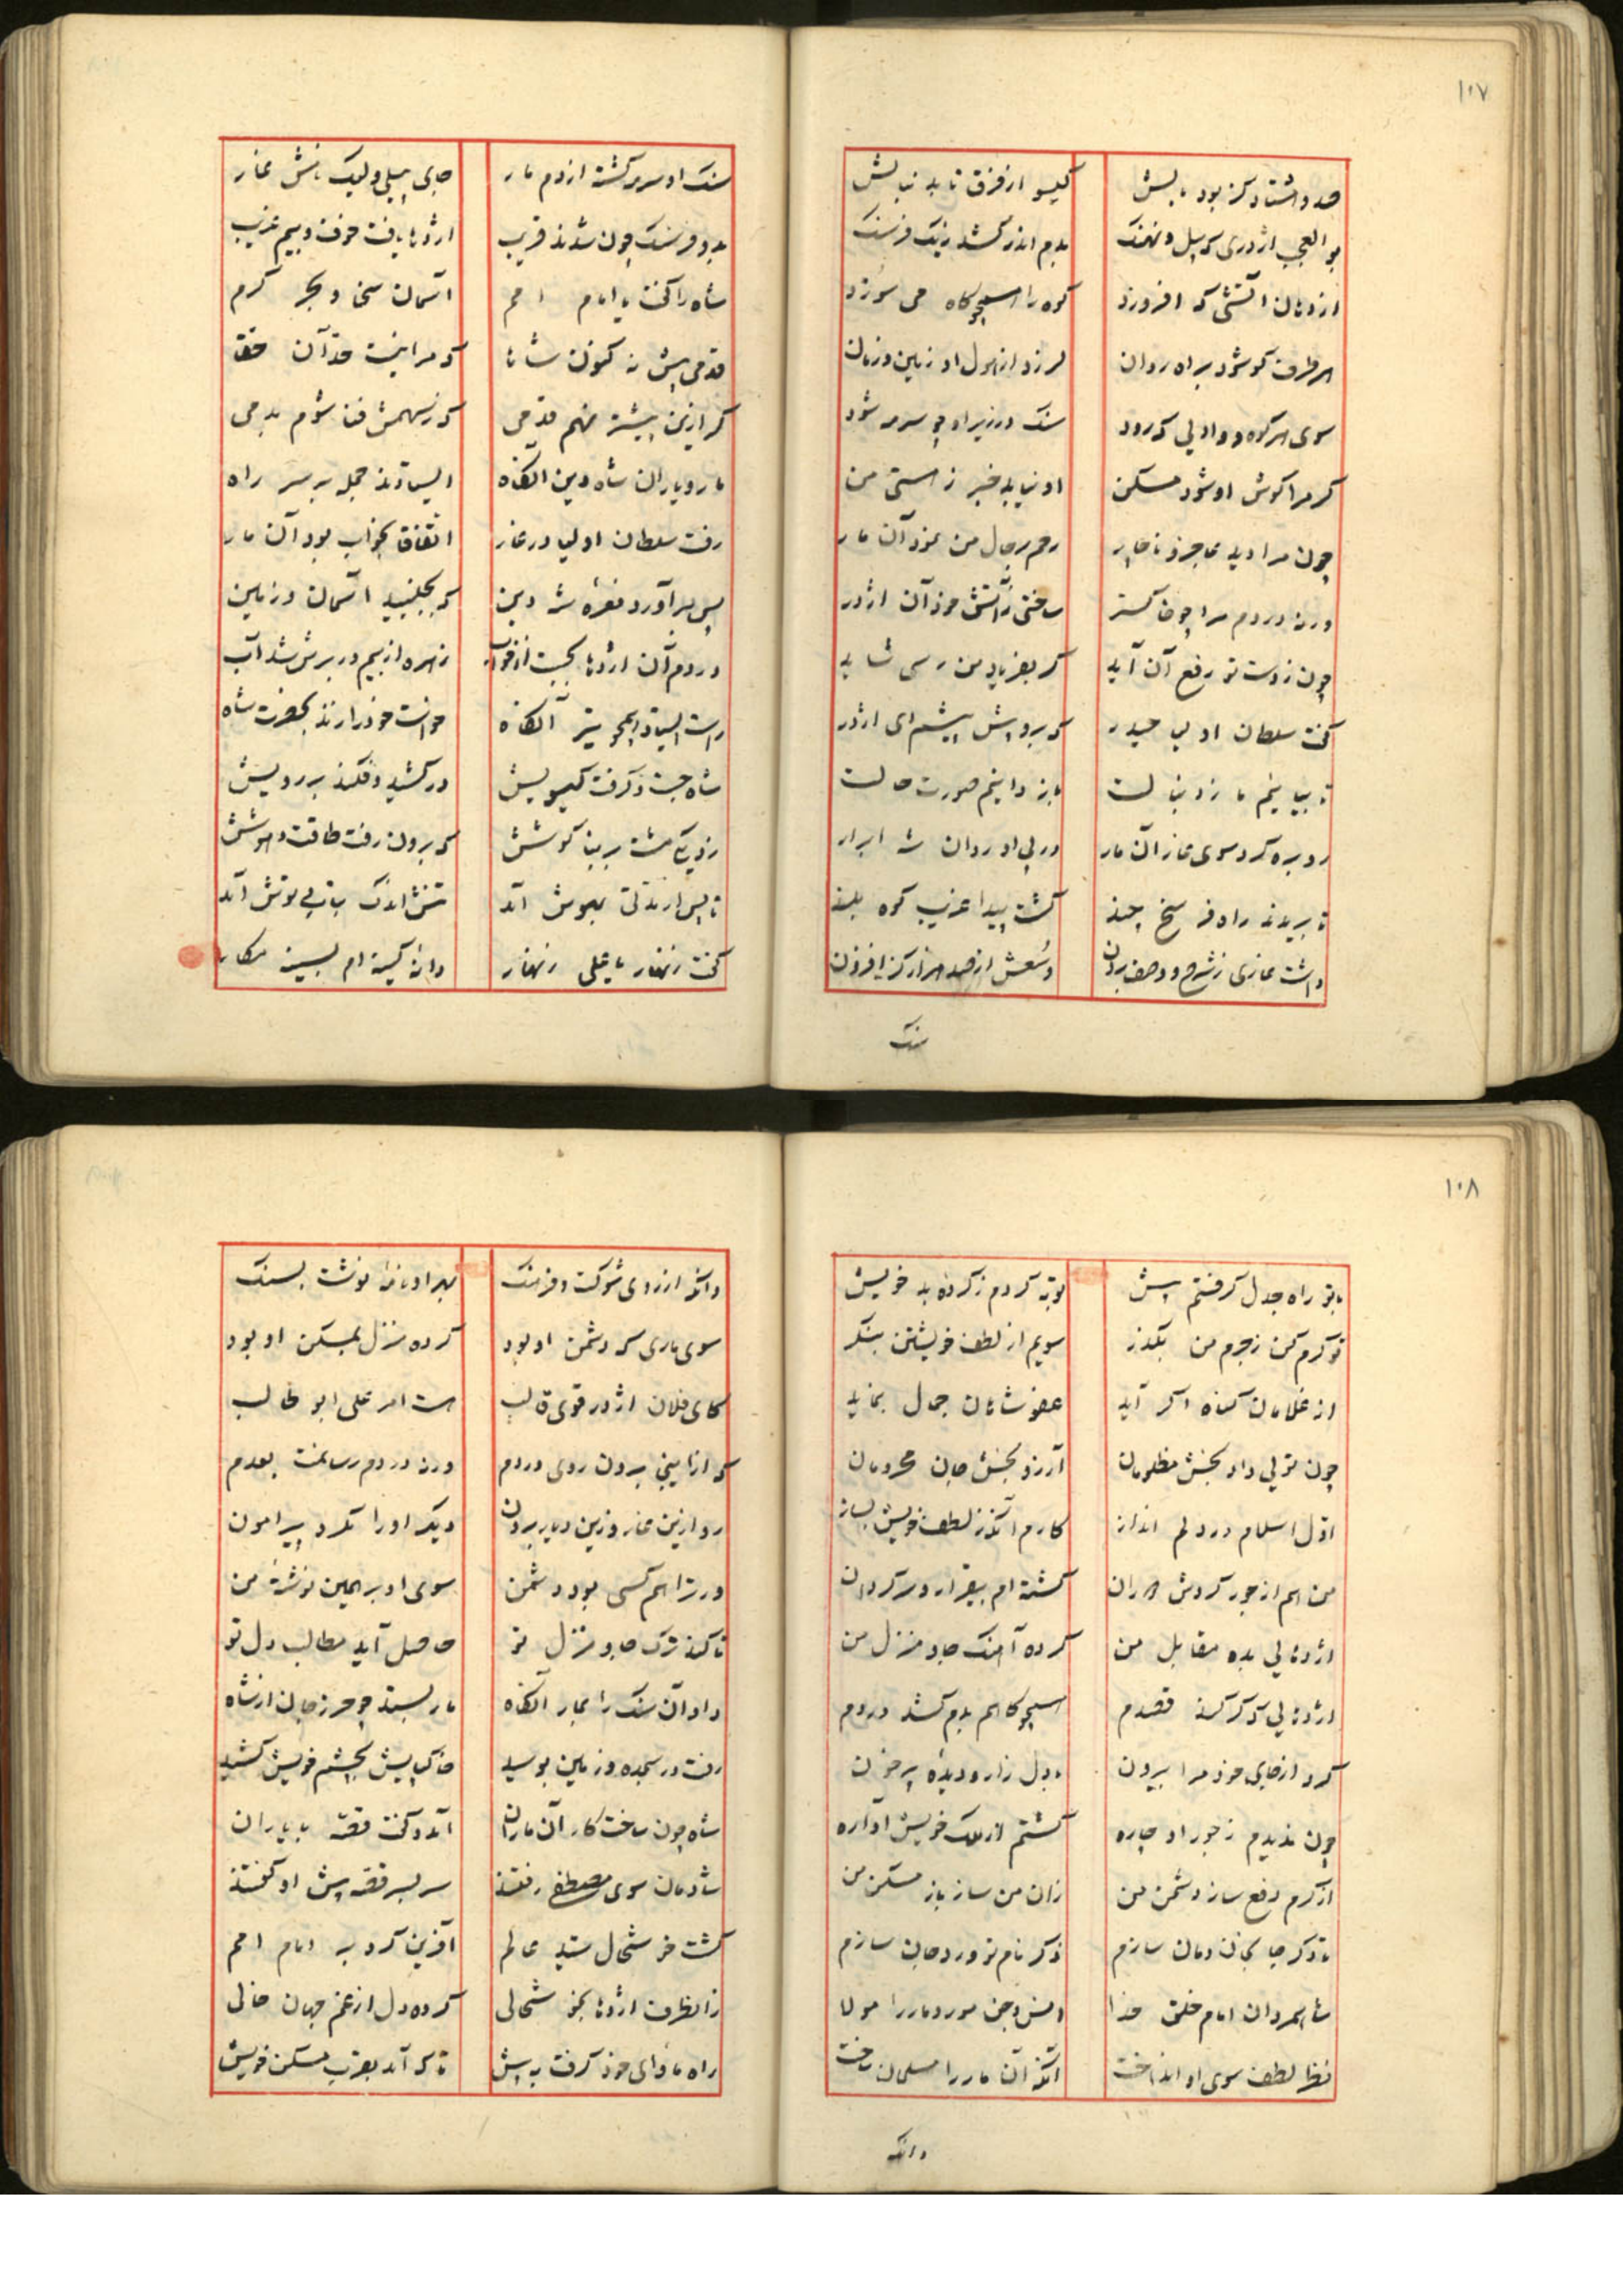 ۱۰۷
صد و هشتاد کز بود بالیش گیسو از فرق تا به دنبالش
بو العجب اژدری که پیل و نهنک بدم اندر کشد ز یک فرسنک
از دهان آتشی که افروزد کوه را همچو کاه می سوزد
هر طرف کو شود براه روان لرزد از هول او زمین و زمان
سوی هر کوه و وادیی که رود سنک در زیر او چو سرمه شود
کر مرا کوش او شود مسکن او نیابد خبر ز هستی من
چون مرا دید عاجز و ناچار رحم بر حال من نمود آن مار
ورنه در دم مرا چو خاکستر ساختی ز آتش خود آن اژدر
چون ز دست تو رفع آن آید کر بفریاد من رسی شاید
کفت سلطان اولیا حیدر که برو پیش پیشم ای اژدر
تا بیاییم ما ز دنبالت باز دانیم صورت حالت
رو بره کرد سوی غار آن مار در پی او روان شه ابرار
تا بریدند راه فرسخ چند کشت پیدا غریب کوه بلند
داشت غاری ز شرح و وصف برون وسعش از صد هزار کز افزون
سنک
سنک او سرمه کشته از دم مار جای پیلی و لیک نامش غار
بدو فرسنک چون شدند قریب اژدها یافت خوف و بیم غریب
شاه را کفت یا امام امم آسمان سخا و بحر کرم
قدمی پیش نه کنون شاها که مرا نیست حد آن حقا
کر ازین پیشتر نهم قدمی که ز سهمش فنا شوم بدمی
مار و یاران شاه دین آنکاه ایستادند جمله بر سر راه
رفت سلطان اولیا در غار اتفاقا بخواب بود آن مار
پس برآورد نعره شه دین که بجنبید آسمان و زمین
در دم آن اژدها بجست از خواب زهره از بیم در برش شد آب
راست ایستاد همچو تیر آنکاه خواست خود را زند بحضرت شاه
شاه جست و کرفت کیسویش در کشید و فکند بر رویش
زد یکی مشت بر بناکوشش که برون رفت طاقت و هوشش
تا پس از مدتی بهوش آمد تنش اندک بتاب و توش آمد
کفت زنهار یا علی زنهار دانه کینه ام بسینه مکار
۱۰۸
با تو راه جدل کرفتم پیش توبه کردم ز کرده بد خویش
تو کرم کن ز جرم من بکذر سویم از لطف خویشتن بنکر
از غلامان کناه اکر آید عفو شاهان جمال بنماید
چون تویی داد بخش مظلومان آرزو بخش جان محرومان
اول اسلام در دلم انداز کارم آنکه ز لطف خویش بساز
من هم از جور کردش دوران کشته ام بیقرار و سرکردان
اژدهایی بده مقابل من کرده آهنک جا و منزل من
اژدهایی که کر کند قصدم همچو کاهم بدم کشد در دم
کرد از جای خود مرا بیرون با دل زار و دیده پر خون
چون ندیدم ز جور او چاره کشتم از ملک خویش آواره
از کرم دفع ساز دشمن من زان من ساز باز مسکن من
تا دکر جا بخان و مان سازم ذکر نام تو ورد جان سازم
شاه مردان امام خلق خدا انس و جن مور و مار را مولا
نظر لطف سوی او انداخت آنکه آن مار را مسلمان ساخت
وانکه
وانکه از روی شوکت و فرهنک بهر او نامه نوشت بسنک
سوی ماری که دشمن او بود کرده منزل بمسکن او بود
کای فلان اژدر قوی قالب هست امر علی ابو طالب
که از اینجا برون روی در دم ورنه در دم رسانمت بعدم
رو ازین غار وزین دیار برون دیکر او را مکرد پیرامون
ور ترا هم کسی بود دشمن سوی او بر همین نوشته من
تا کند ترک جا و منزل تو حاصل آید مطالب دل تو
داد آن سنک را بمار آنکاه مار بستد چو حرز جان از شاه
رفت در سجده و زمین بوسید خاک پایش بچشم خویش کشید
شاه چون ساخت کار آن ماران آمد و کفت قصه با یاران
شادمان سوی مصطفی رفتند سر بسر قصه پیش او کفتند
کشت خوشحال سید عالم آفرین کرد بر امام امم
زانطرف اژدها بخوشحالی کرده دل از غم جهان خالی
راه ماوای خود کرفت به پیش تا که آمد بقرب مسکن خویش